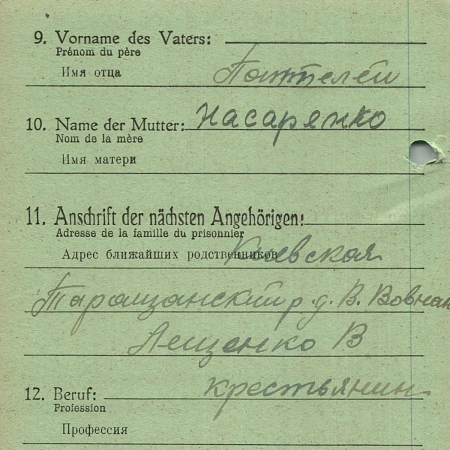 9. Vorname des Vaters:
Prénom du père
Имя отца
Пантелей
10. Name der Mutter: Насаренко
Nom de la mère
Имя матери
11. Anschrift der nächsten Angehörigen:
Adresse de la famille du prisonnier
Адрес ближайших родственников Киевская
Таращанский р. д. В. Вовнян
Лещенко В
крестьянин
12. Beruf:
Profession
Профессия